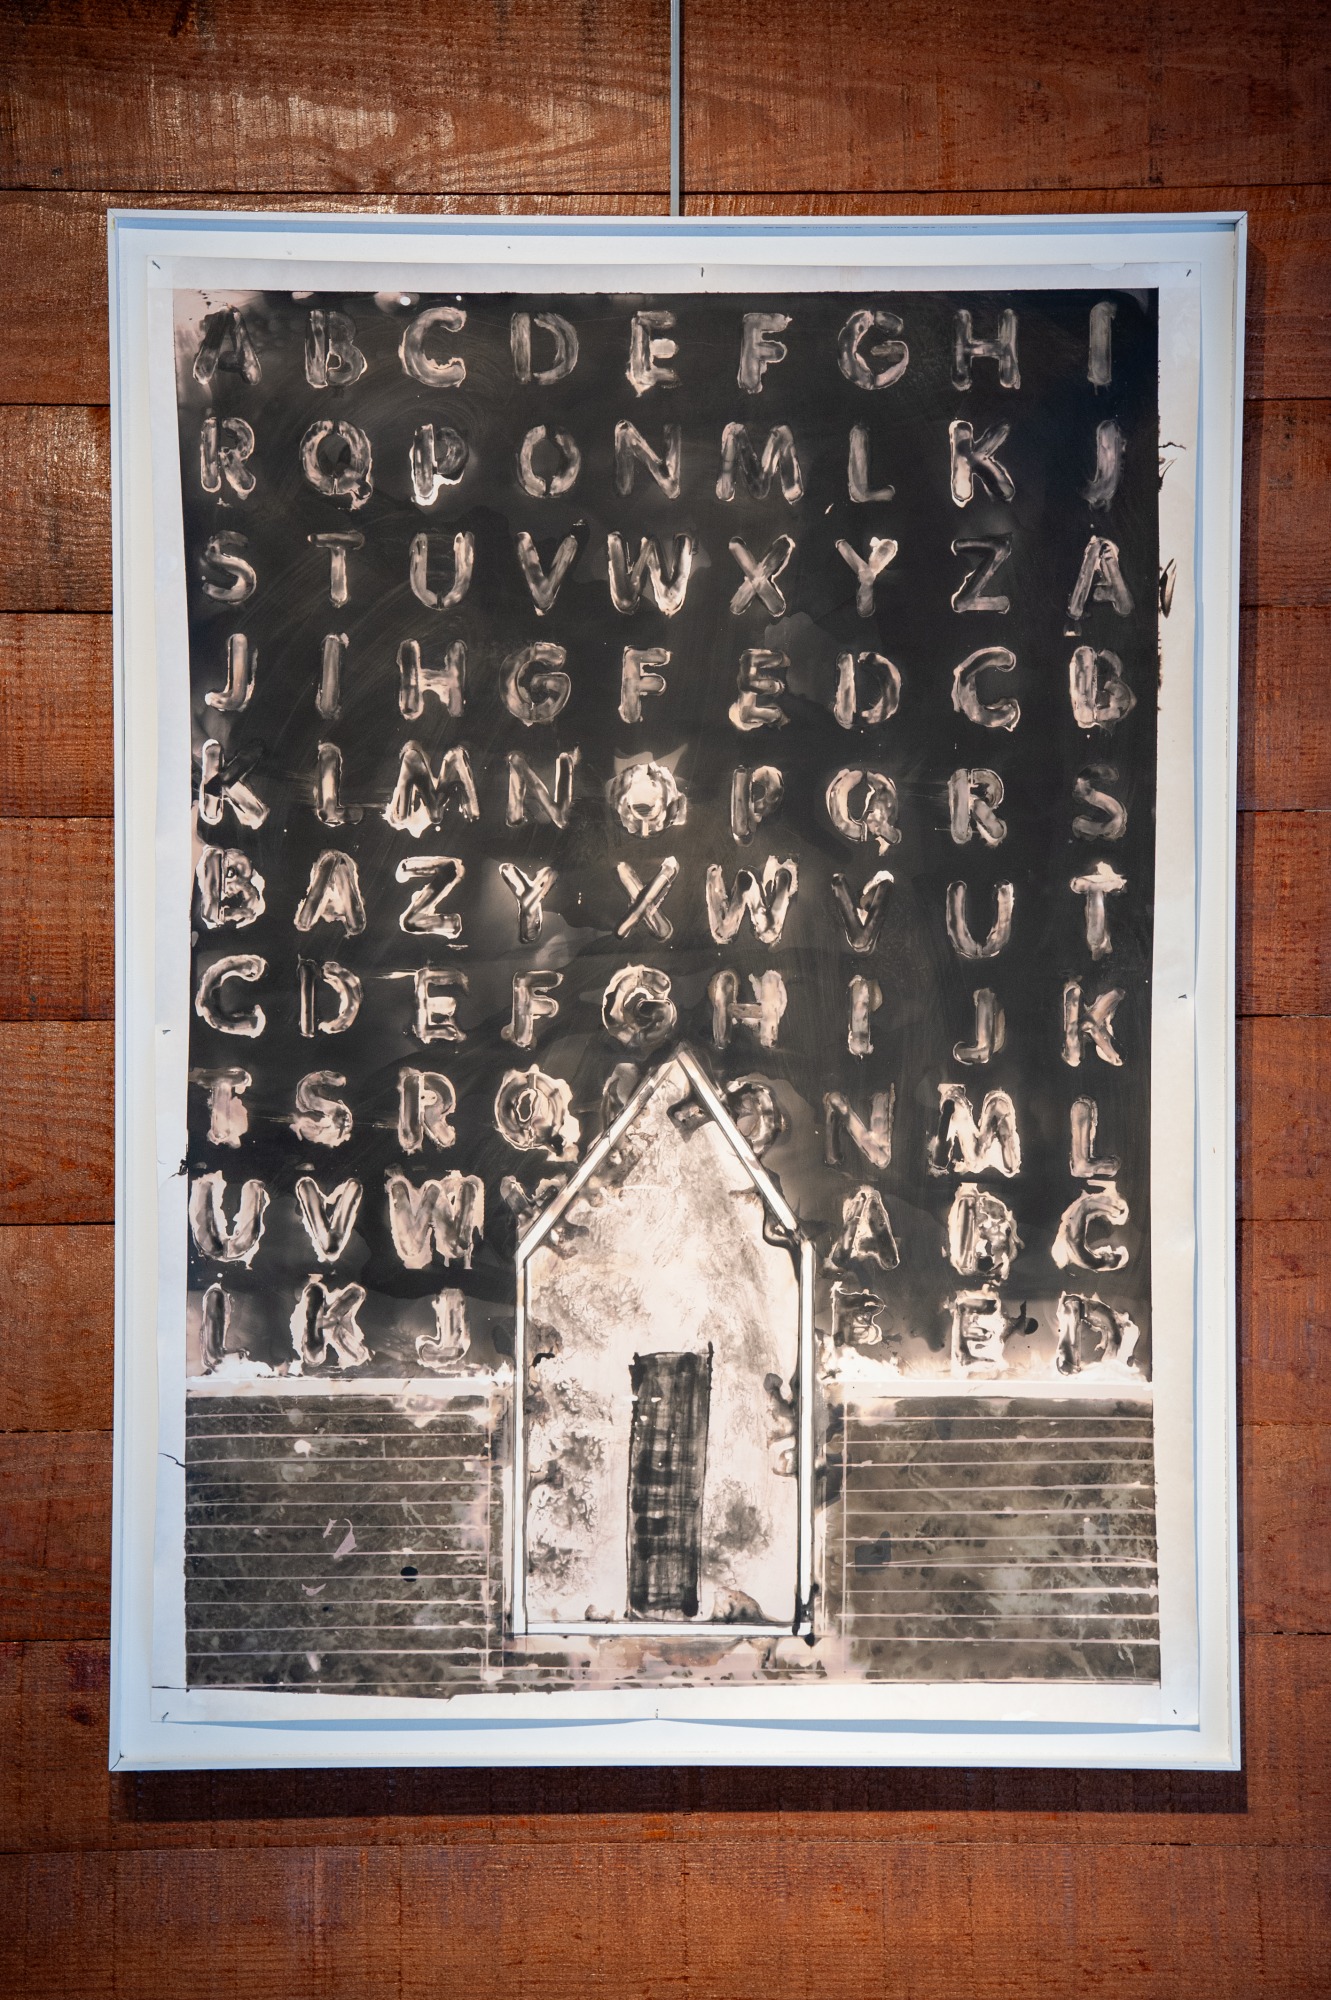 A B C D E F G H I
R Q P O N M L K J
S T U V W X Y Z A
J I H G F E D C B
K L M N O P Q R S
B A Z Y X W V U T
C D E F G H I J K
T S R Q O N M L
U V W A B C
L K J E E D